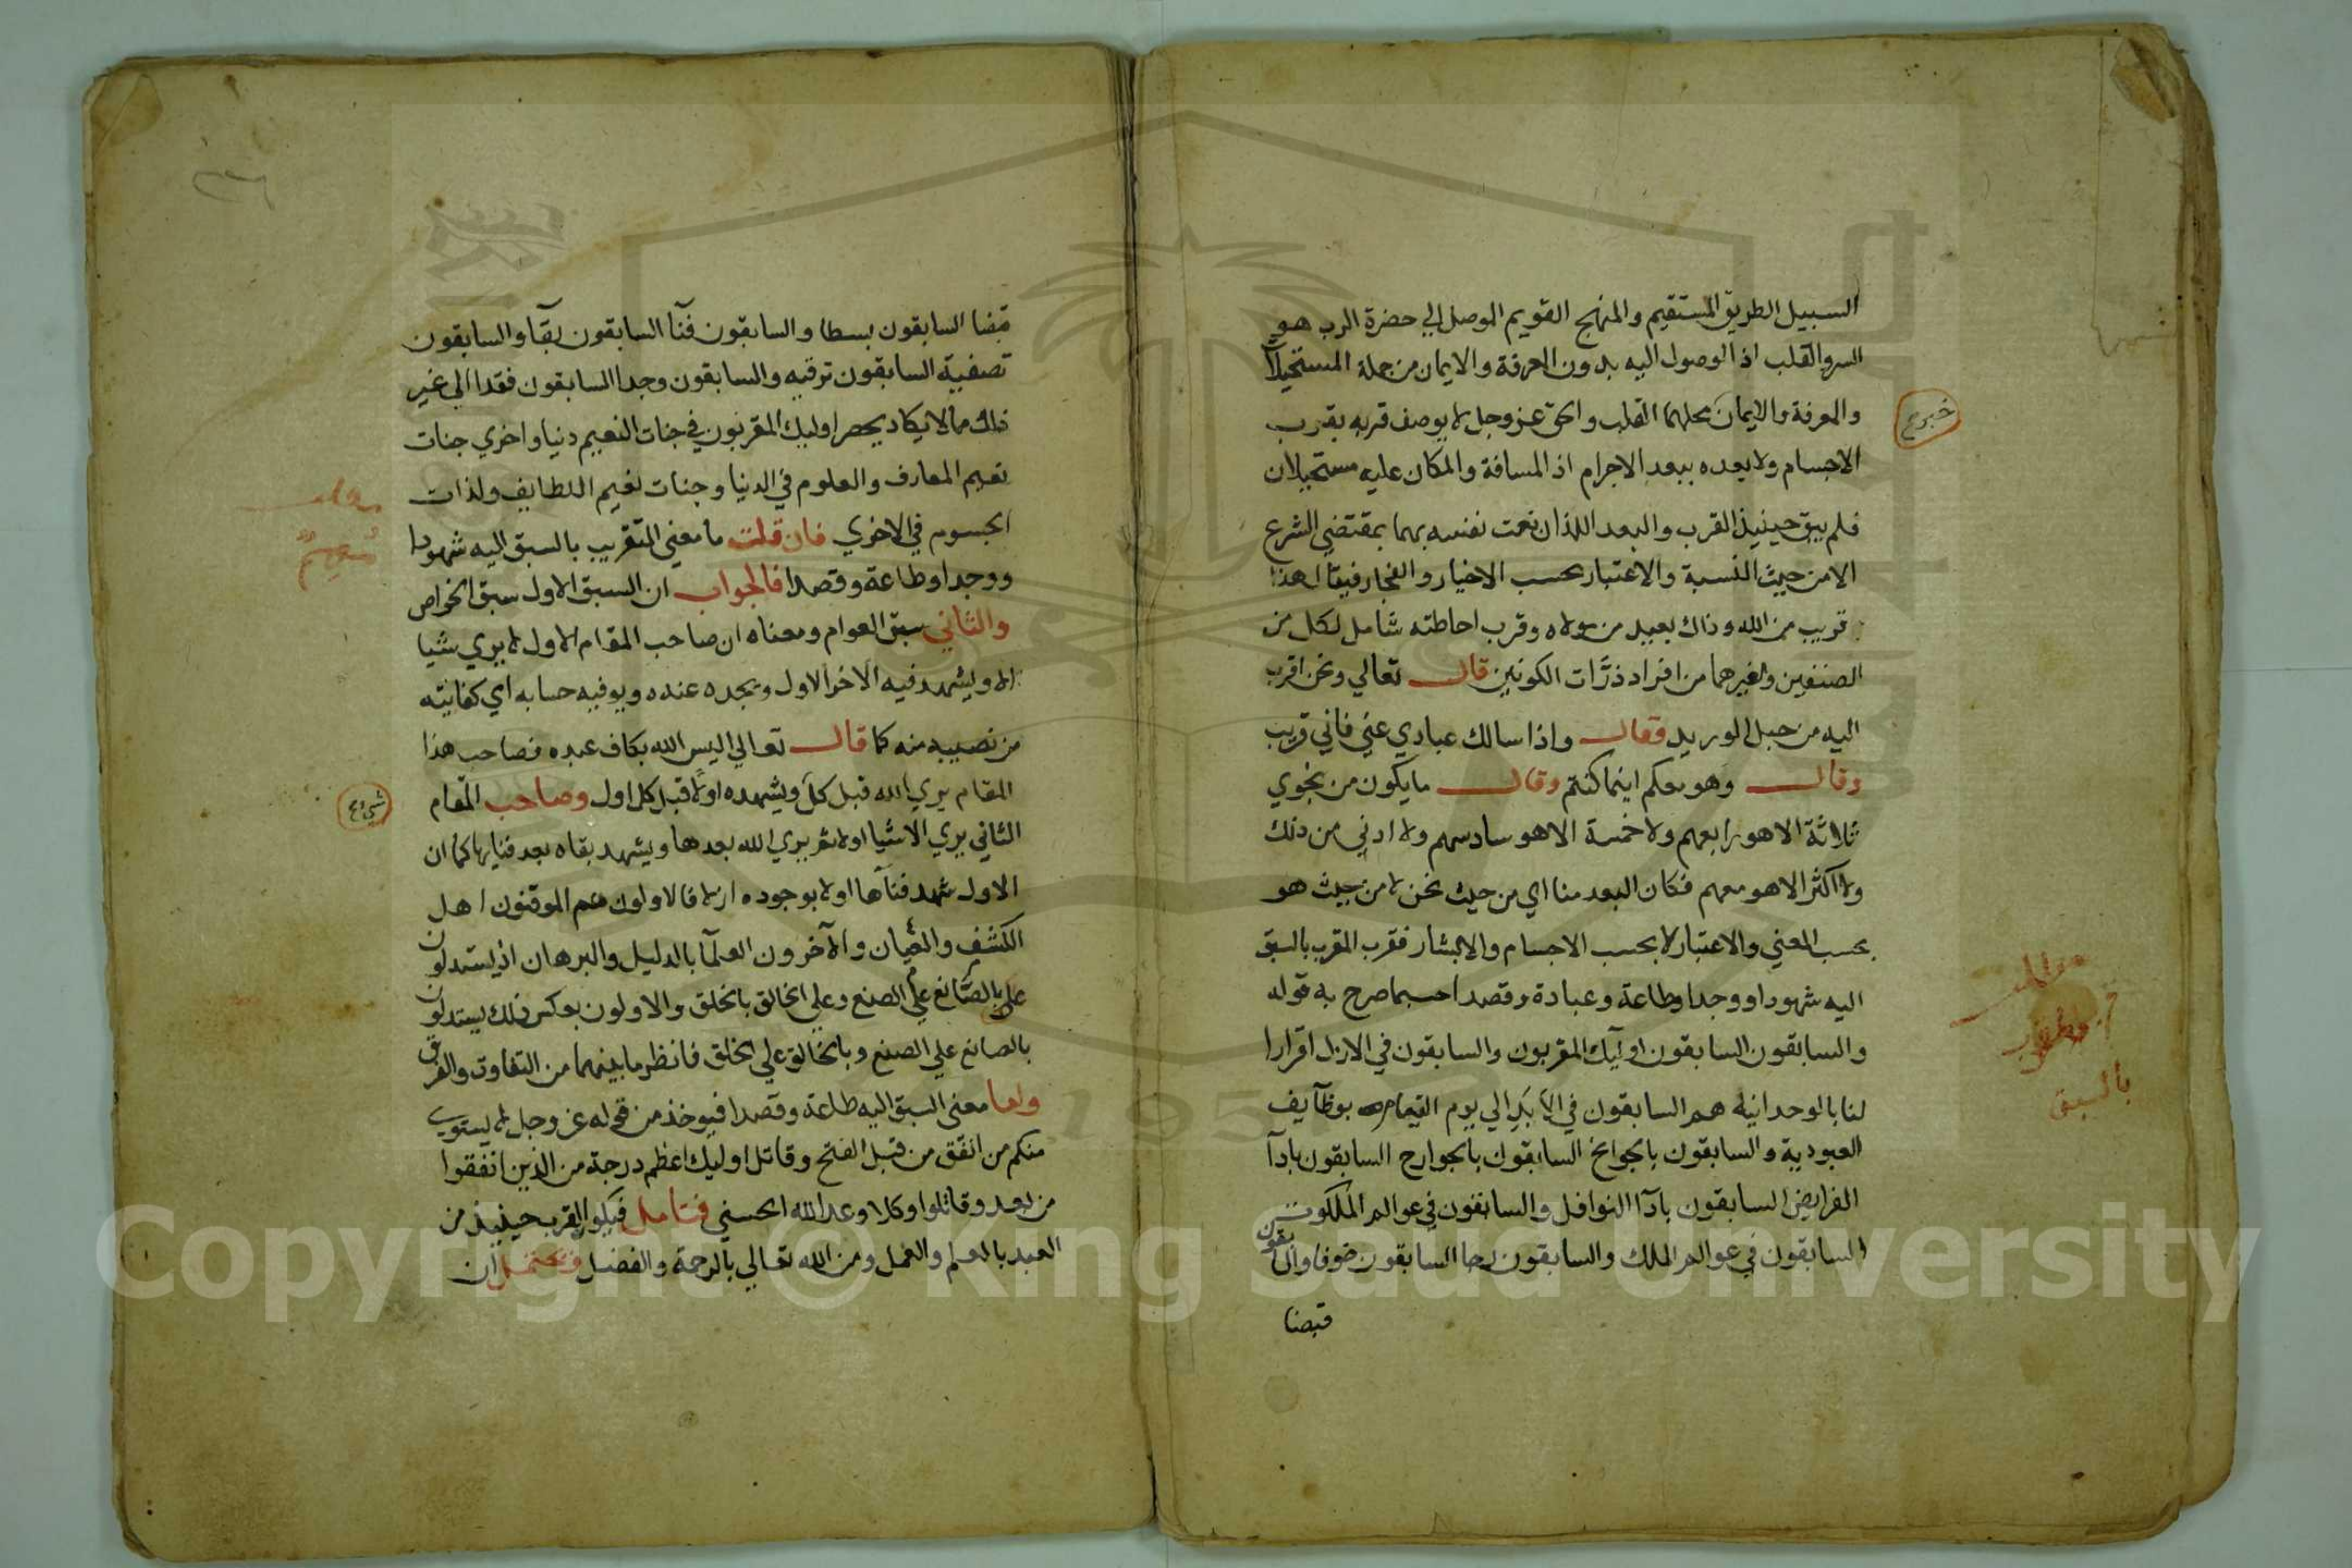 السبيل الطريق المستقيم والمنهج القويم الموصل الي حضرة الرب هو
السر والقلب اذ الوصول اليه بدون المعرفة والايمان من جملة المستحيلا
والمعرفة والايمان محلهما القلب والحق عز وجل لا يوصف قربه بقرب
الاجسام ولا بعده ببعد الاجرام اذ المسافة والمكان عليه مستحيلان
فلم يبق حينيذ القرب والبعد اللذان نعت نفسه بهما بمقتضي الشرع
الا من حيث النسبة والاعتبار بحسب الاخيار والفجار فيقال هذا
قريب من الله وذاك بعيد من مولاه وقرب احاطته شامل لكل من
الصنفين ولغيرهما من افراد ذرات الكونين قال تعالي ونحن اقرب
اليه من حبل الوريد فقال واذا سالك عبادي عني فاني قريب
وقال وهو معكم اينما كنتم وقال ما يكون من نجوي
ثلاثة الا هو رابعهم ولا خمسة الا هو سادسهم ولا ادني من ذلك
ولا اكثر الا هو معهم فكان البعد منا اي من حيث نحن لا من حيث هو
بحسب المعني والاعتبار لا بحسب الاجسام والابشار فقرب المقرب بالسبق
اليه شهودا ووجدا وطاعة وعبادة وقصدا حسبما صرح به قوله
والسابقون السابقون اوليك المقربون والسابقون في الازل اقرارا
لنا بالوحدانية هم السابقون في الابد الي يوم القيمة بوظآيف
العبودية والسابقون بالجوانح السابقون بالجوارح السابقون بادآ
الفرايض السابقون بادآ النوافل والسابقون في عوالم الملكوت
السابقون في عوالم الملك والسابقون رجا السابقون خوفا والسابقون
قبضا
خبرع
بالسبق
قبضا السابقون بسطا والسابقون فنآ السابقون بقآ والسابقون
تصفية السابقون ترقيه والسابقون وجدا السابقون فقدا الي غير
ذلك مما لا يكاد يحصر اوليك المقربون في جنات النعيم دنيا واخري جنات
نعيم المعارف والعلوم في الدنيا وجنات نعيم اللطايف ولذات
الجسوم في الاخري فان قلت ما معني التقريب بالسبق اليه شهودا
ووجدا وطاعة وقصدا فالجواب ان السبق الاول سبق الخواص
والثاني سبق العوام ومعناه ان صاحب المقام الاول لا يري شيا
الا ويشهد فيه الآخر الاول ويجده عنده ويوفيه حسابه اي كفايته
من نصيبه منه كما قال تعالي اليس الله بكاف عبده فصاحب هذا
المقام يري الله قبل كل ويشهده اولا قبل كل اول وصاحب المقام
الثاني يري الاشيا اولا ثم يري الله بعدها ويشهد بقاه بعد فنايها كما ان
الاول شهد فنآها اولا بوجوده ازلا فالاولون هم الموقنون اهل
الكشف والعيان والآخرون العلمآ بالدليل والبرهان اذ يستدلون
علي الصانع بالصنع وعلي الخالق بالخلق والاولون بعكس ذلك يستدلون
بالصانع علي الصنع وبالخالق علي الخلق فانظر ما بينهما من التفاوت والفرق
واما معني السبق اليه طاعة وقصدا فيوخذ من قوله عز وجل لا يستوي
منكم من انفق من قبل الفتح وقاتل اوليك اعظم درجة من الذين انفقوا
من بعد وقاتلوا وكلا وعد الله الحسني فتامل فيكون القرب حينيذ من
العبد بالعلم والعمل ومن الله تعالي بالرحمة والفضل ويحتمل ان
Copyright © King Saud University